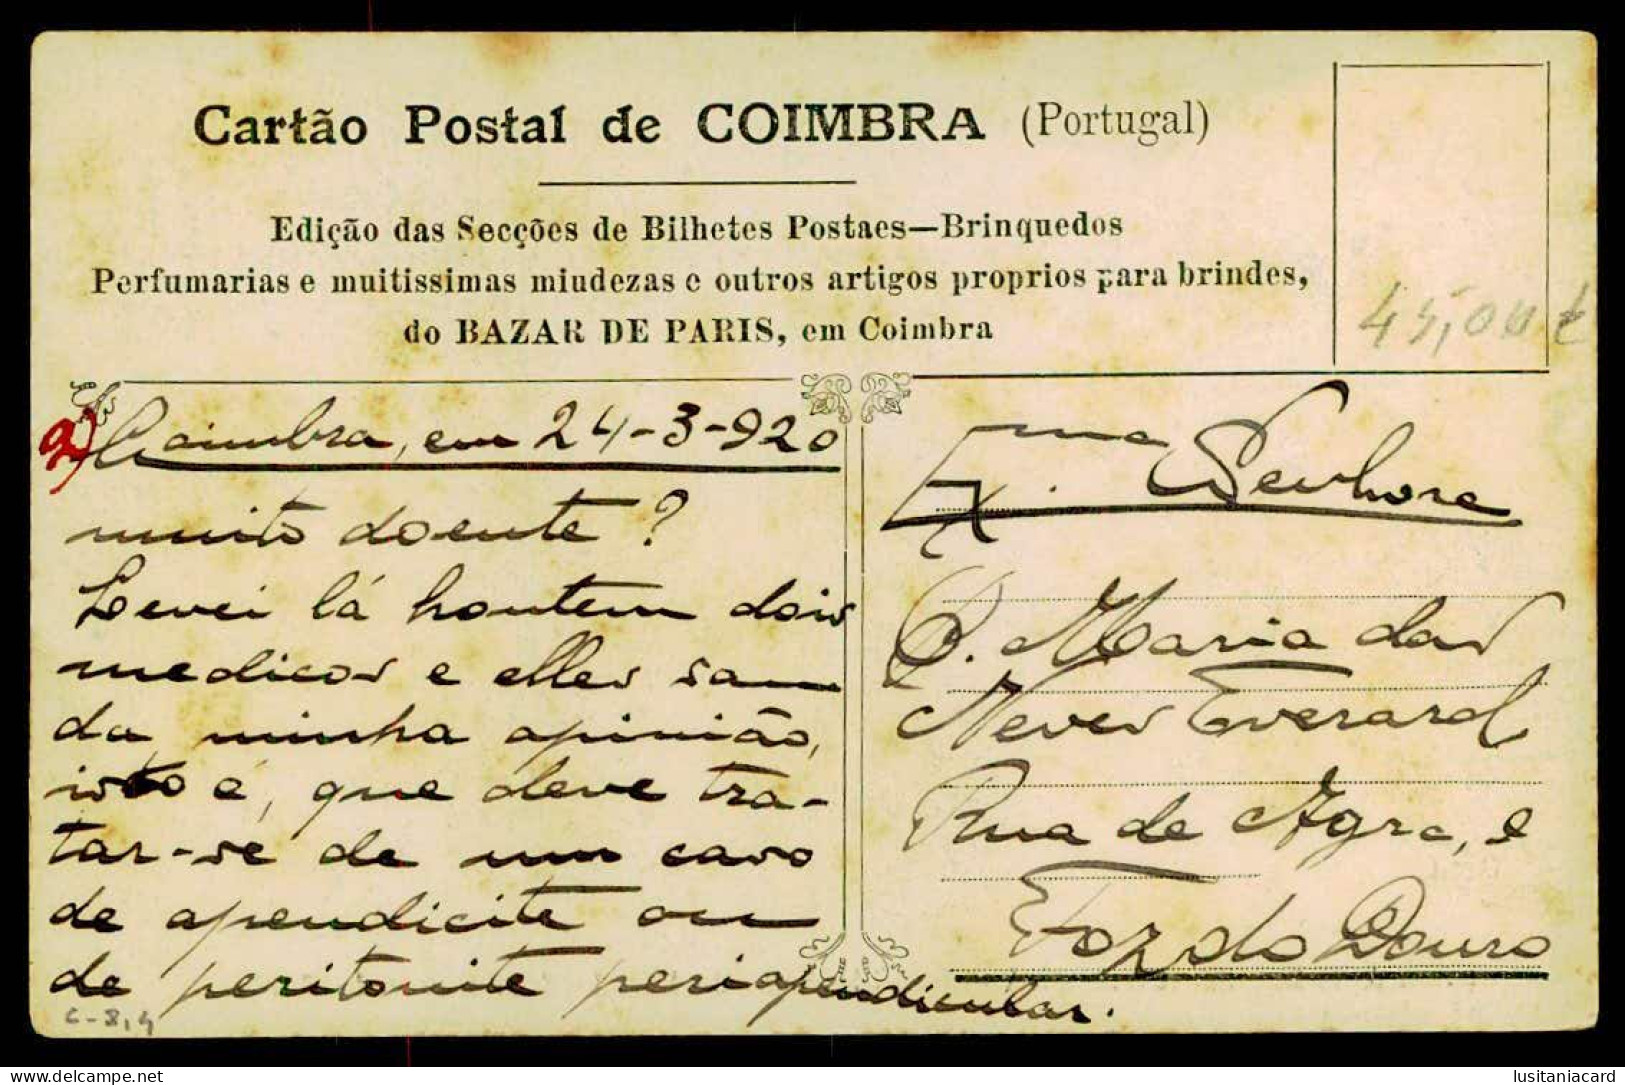 Cartão Postal de COIMBRA (Portugal)
Edição das Secções de Bilhetes Postaes—Brinquedos
Perfumarias e muitissimas miudezas e outros artigos proprios para brindes,
do BAZAR DE PARIS, em Coimbra
45,00
2)
Coimbra, em 24-3-920
muito doente?
Levei lá hontem dois
medicos e elles sam
da minha opinião,
isto é, que deve tra-
tar-se de um caso
de apendicite ou
de peritonite periapendicular.
Ex.ma Senhora
D. Maria das
Neves Everard
Rua de Agra, 2
Foz do Douro
lusitaniacard